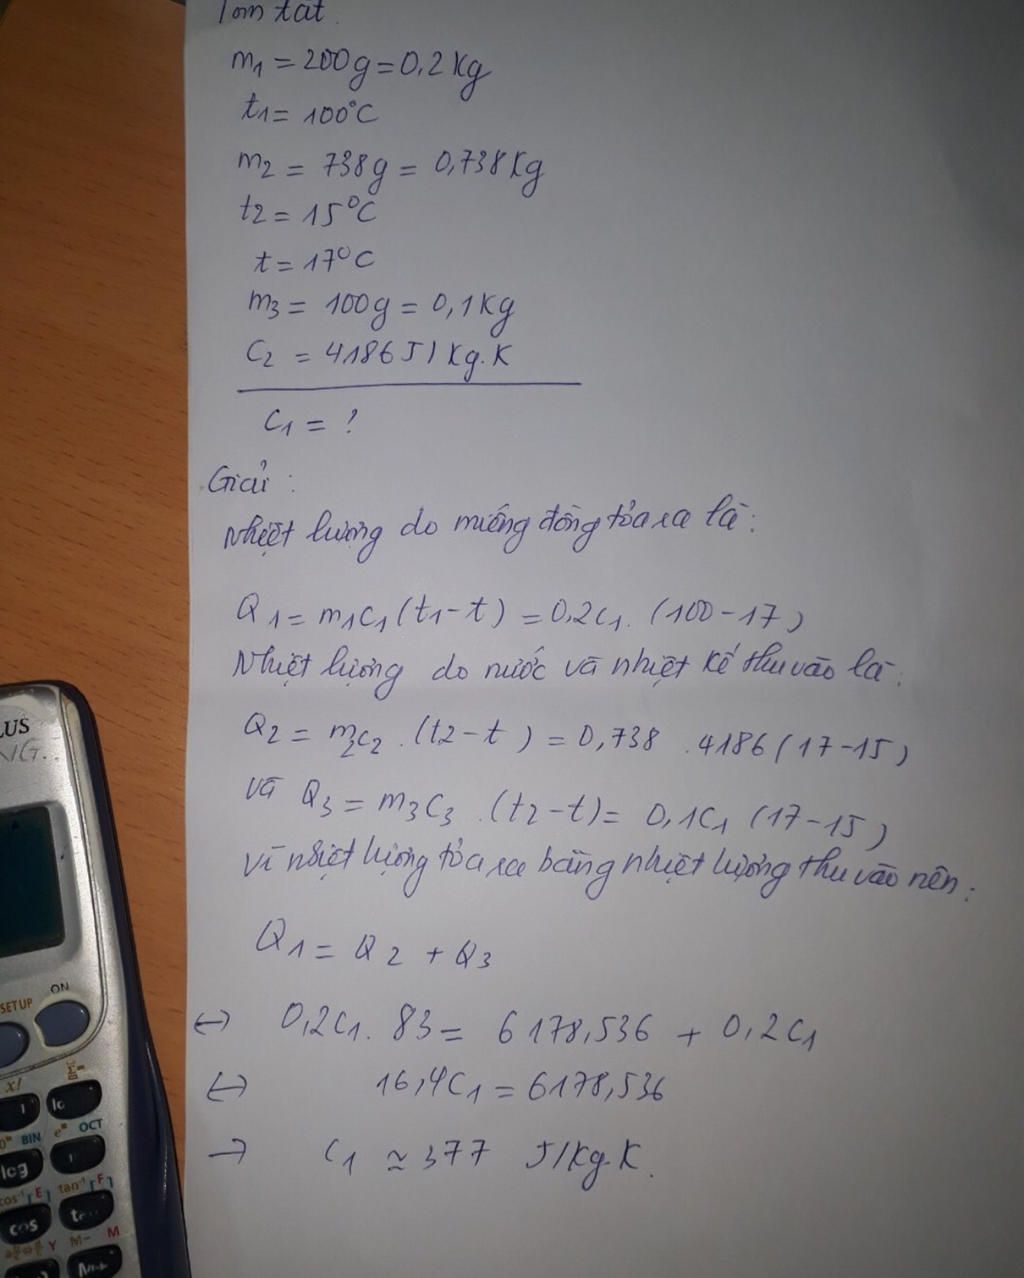 Tom tat
m1 = 200g = 0,2 Kg
t1 = 100°C
m2 = 738g = 0,738 Kg
t2 = 15°C
t = 17°C
m3 = 100g = 0,1 Kg
C2 = 4186 J/Kg.K
C1 = ?
Giải :
Nhiệt lượng do miếng đồng tỏa ra là:
Q1 = m1C1 (t1-t) = 0,2C1. (100-17)
Nhiệt lượng do nước và nhiệt kế thu vào là:
Q2 = m2C2 . (t2-t) = 0,738 .4186 (17-15)
và Q3 = m3C3 .(t2-t) = 0,1C1 (17-15)
vì nhiệt lượng tỏa ra bằng nhiệt lượng thu vào nên:
Q1 = Q2 + Q3
↔ 0,2C1. 83 = 6178,536 + 0,2C1
↔ 16,4C1 = 6178,536
→ C1 ≃ 377 J/Kg.K.
LUS
SETUP
ON
x!
BIN
OCT
log
cos
M-
M